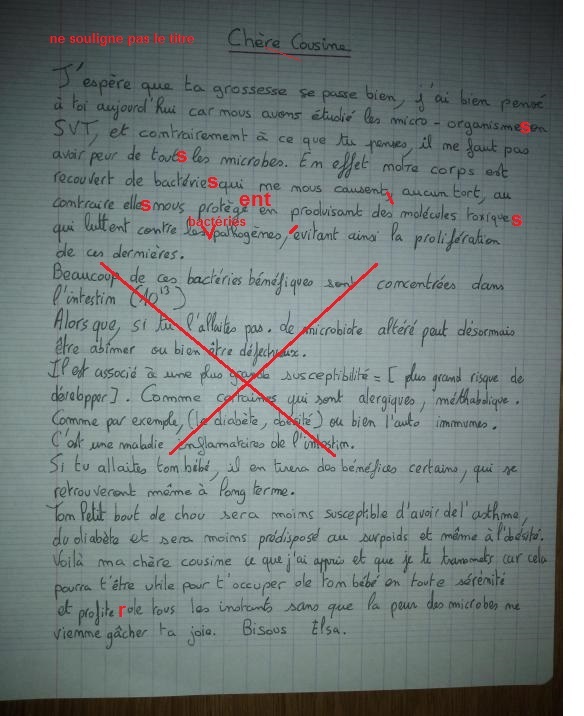 ne souligne pas le titre
Chère Cousine
J'espère que ta grossesse se passe bien, j'ai bien pensé
à toi aujourd'hui car nous avons étudié les micro-organismes en
SVT, et contrairement à ce que tu penses, il ne faut pas
avoir peur de touts les microbes. En effet notre corps est
recouvert de bactéries qui ne nous causent aucun tort, au
contraire elles nous protègent en produisant des molécules toxiques
bactéries
qui luttent contre les pathogènes, évitant ainsi la prolifération
de ces dernières.
Beaucoup de ces bactéries bénéfiques sont concentrées dans
l'intestin (10¹³)
Alors que, si tu l'allaites pas. de microbiote altéré peut désormais
être abîmer ou bien être défectueux.
Il est associé à une plus grande susceptibilité = [ plus grand risque de
développer]. Comme certaines qui sont alergiques, méthabolique.
Comme par exemple, (le diabète, obésité) ou bien l'auto immunes.
C'est une maladie inflamatoires de l'intestin.
Si tu allaites ton bébé, il en tirera des bénéfices certains, qui se
retrouveront même à long terme.
Ton Petit bout de chou sera moins susceptible d'avoir de l'asthme,
du diabète et sera moins prédisposé au surpoids et même à l'obésité.
Voilà ma chère cousine ce que j'ai appris et que je te transmets car cela
pourra t'être utile pour t'occuper de ton bébé en toute sérénité
et profiter de tous les instants sans que la peur des microbes ne
vienne gâcher ta joie. Bisous Elsa.